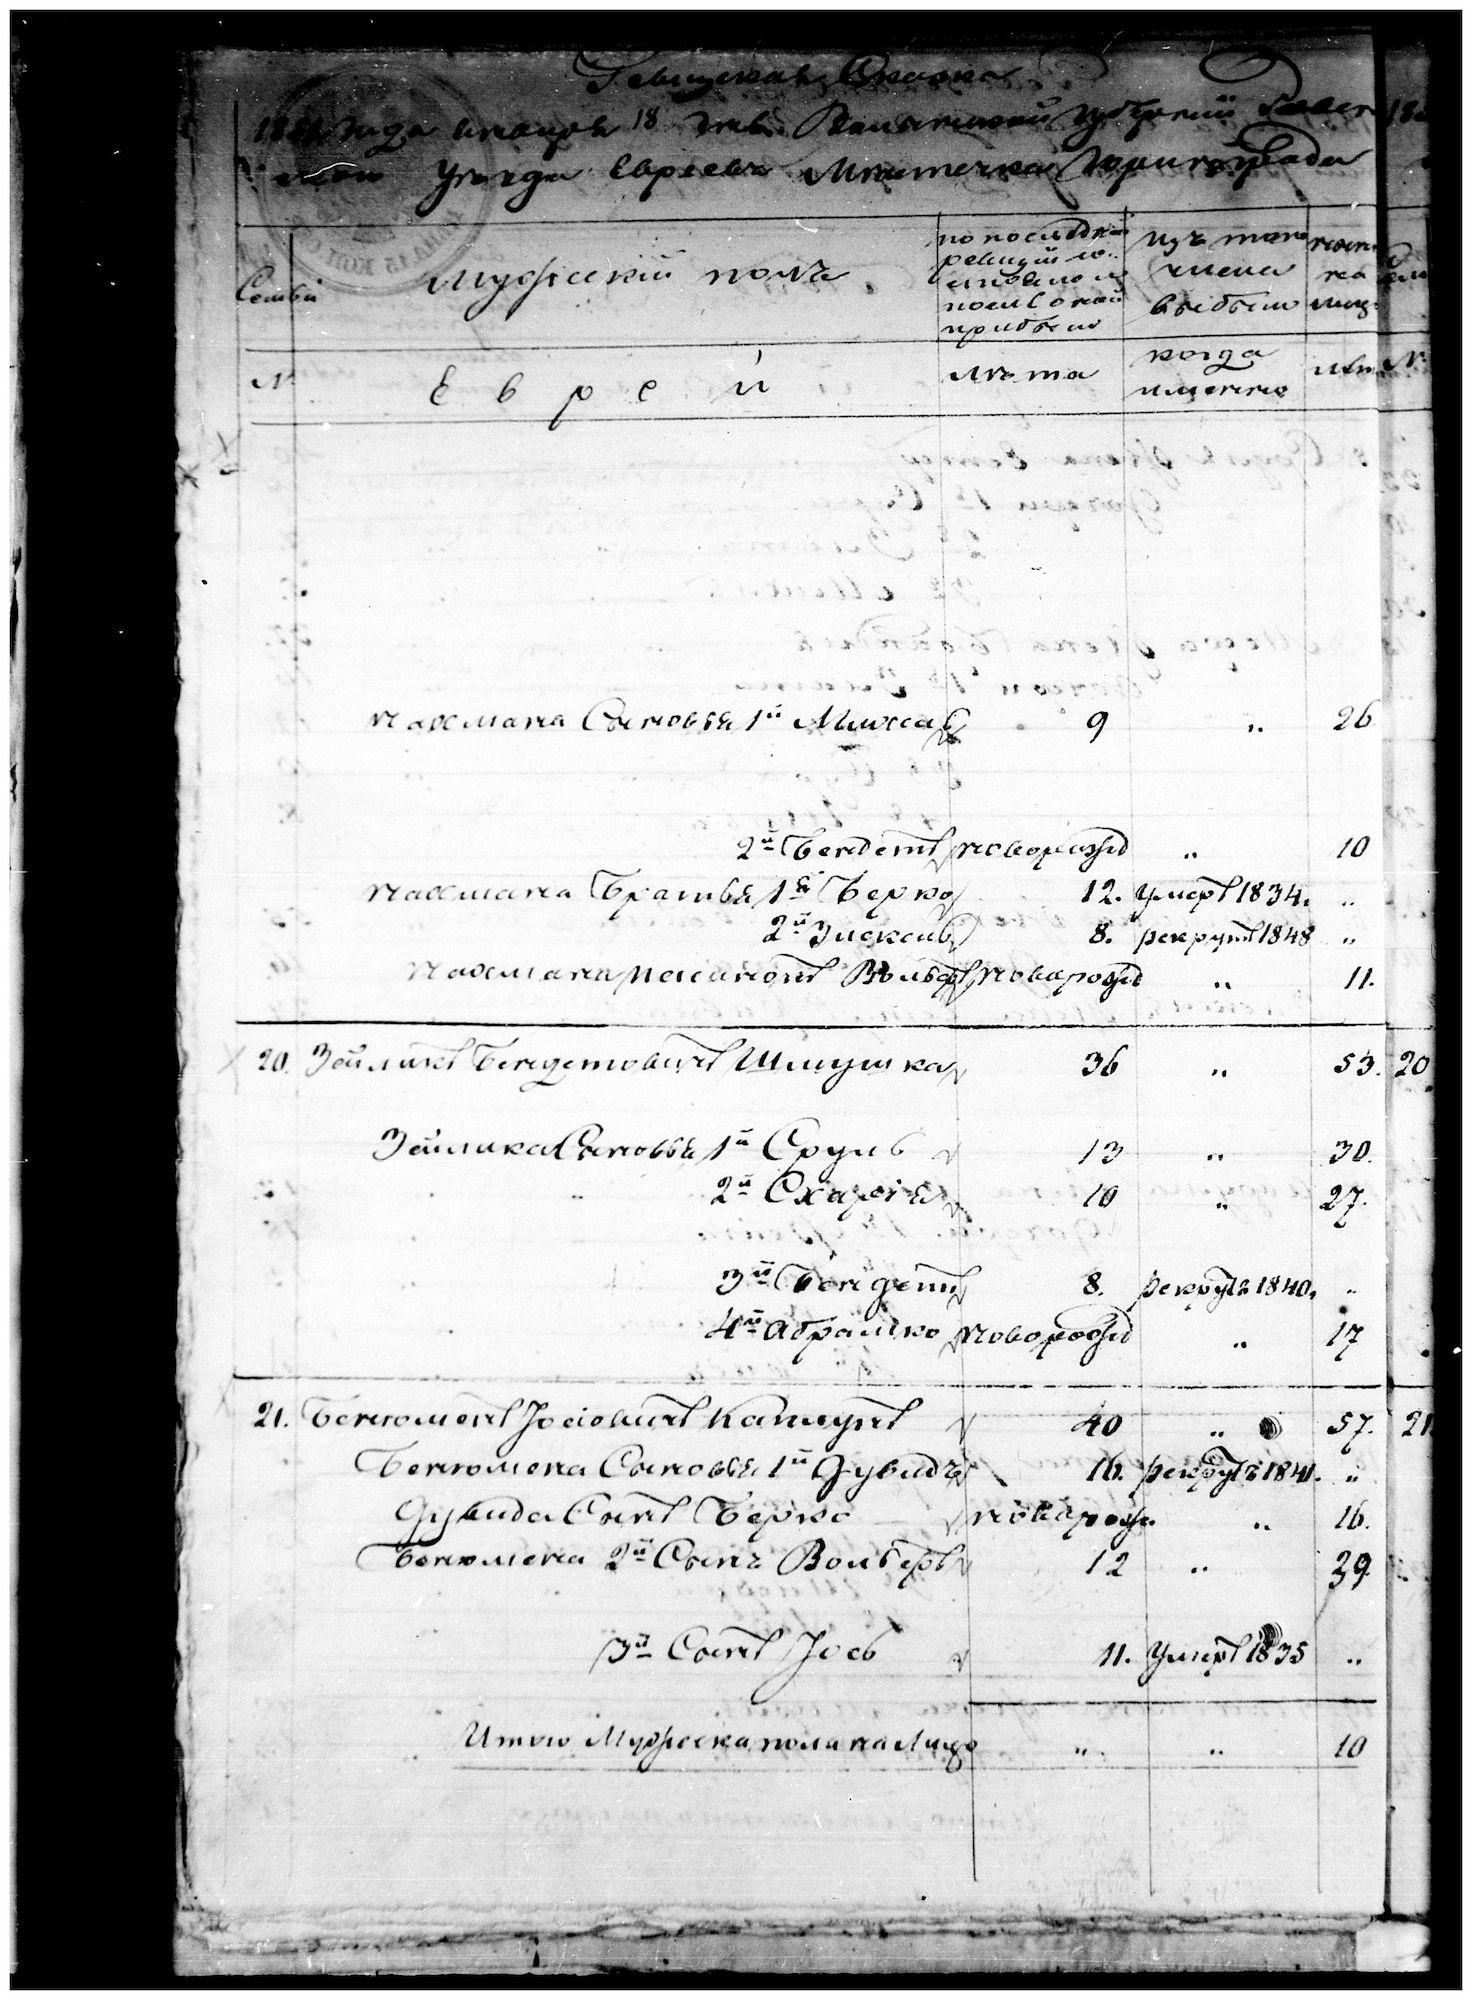 Ревизская Сказка
1851 года января 18 дня Волынской губернии Ровен
скаго уезда Евреевъ Местечка Тучинграда
Семьи
Мужеский полъ
по последней
ревизии со
стояло и
после оной
прибыло
Изъ того
числа
выбыло
ныне
на
лицо
№
Еврей
Лета
когда
именно
Лет №
Нахмана Сыновья 1й Мошка 9 „ 26
2й Бендетъ новорожд „ 10
Нахмана Братья 1й Берко 12. Умеръ 1834. „
2й Зискель 8. рекрутъ 1848 „
Нахмана племянъ Вольфъ новорожд „ 11.
20. Зейликъ Бендетовичъ Шмушка 36 „ 53. 20
Зейлика Сыновья 1й Сруль 13 „ 30.
2й Схарія 10 „ 27.
3й Бендетъ 8. рекрутъ 1840. „
4й Абрамко новорожд „ 17
21. Бенюменъ Іосіовичъ Кацунъ 40 „ 57. 21
Бенюмена Сыновья 1й Дувидъ 16. рекрутъ 1841. „
Дувида Сынъ Берко новорож. „ 16.
Бенюмена 2й Сынъ Вольберъ 12 „ 39
3й Сынъ Іось 11. Умеръ 1835 „
Итого Мужеска пола на Лицо „ „ 10